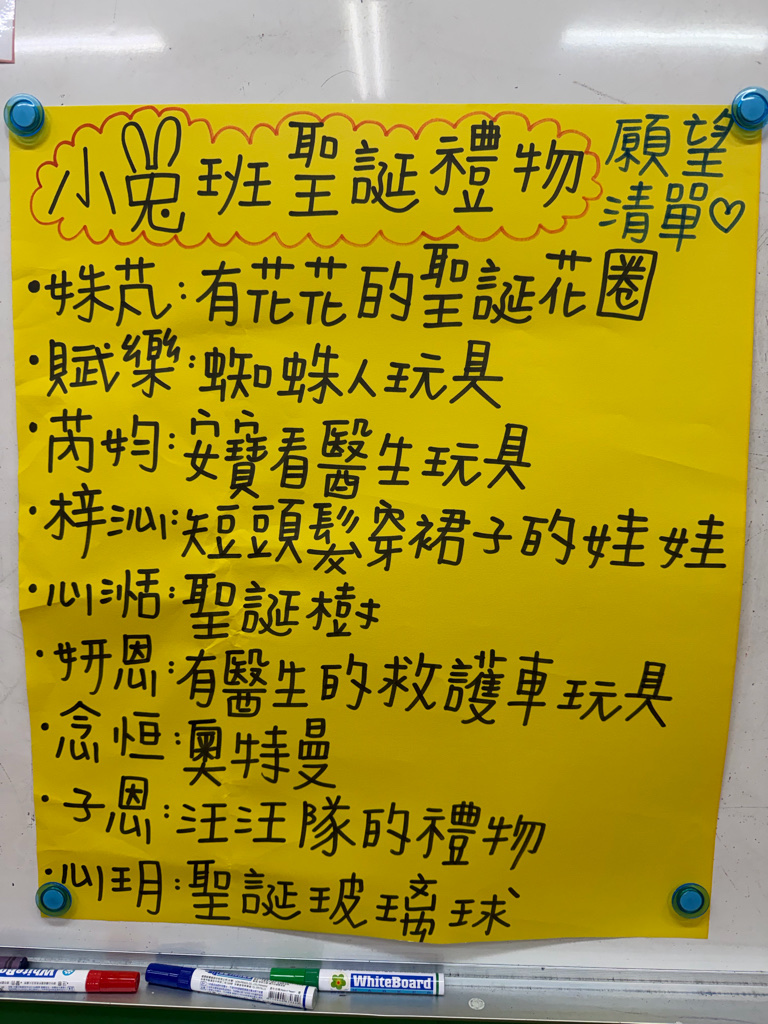 小兔班聖誕禮物 願望清單♡
•姝芃:有花花的聖誕花圈
•賦樂:蜘蛛人玩具
•芮妁:安寶看醫生玩具
•梓沁:短頭髮穿裙子的娃娃
•心湉:聖誕樹
•妍恩:有醫生的救護車玩具
•念恒:奧特曼
•子恩:汪汪隊的禮物
•心玥:聖誕玻璃球
WhiteBoard